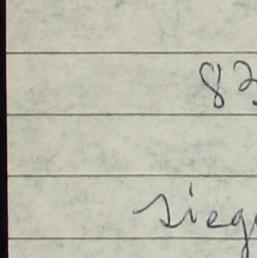 83
sieg